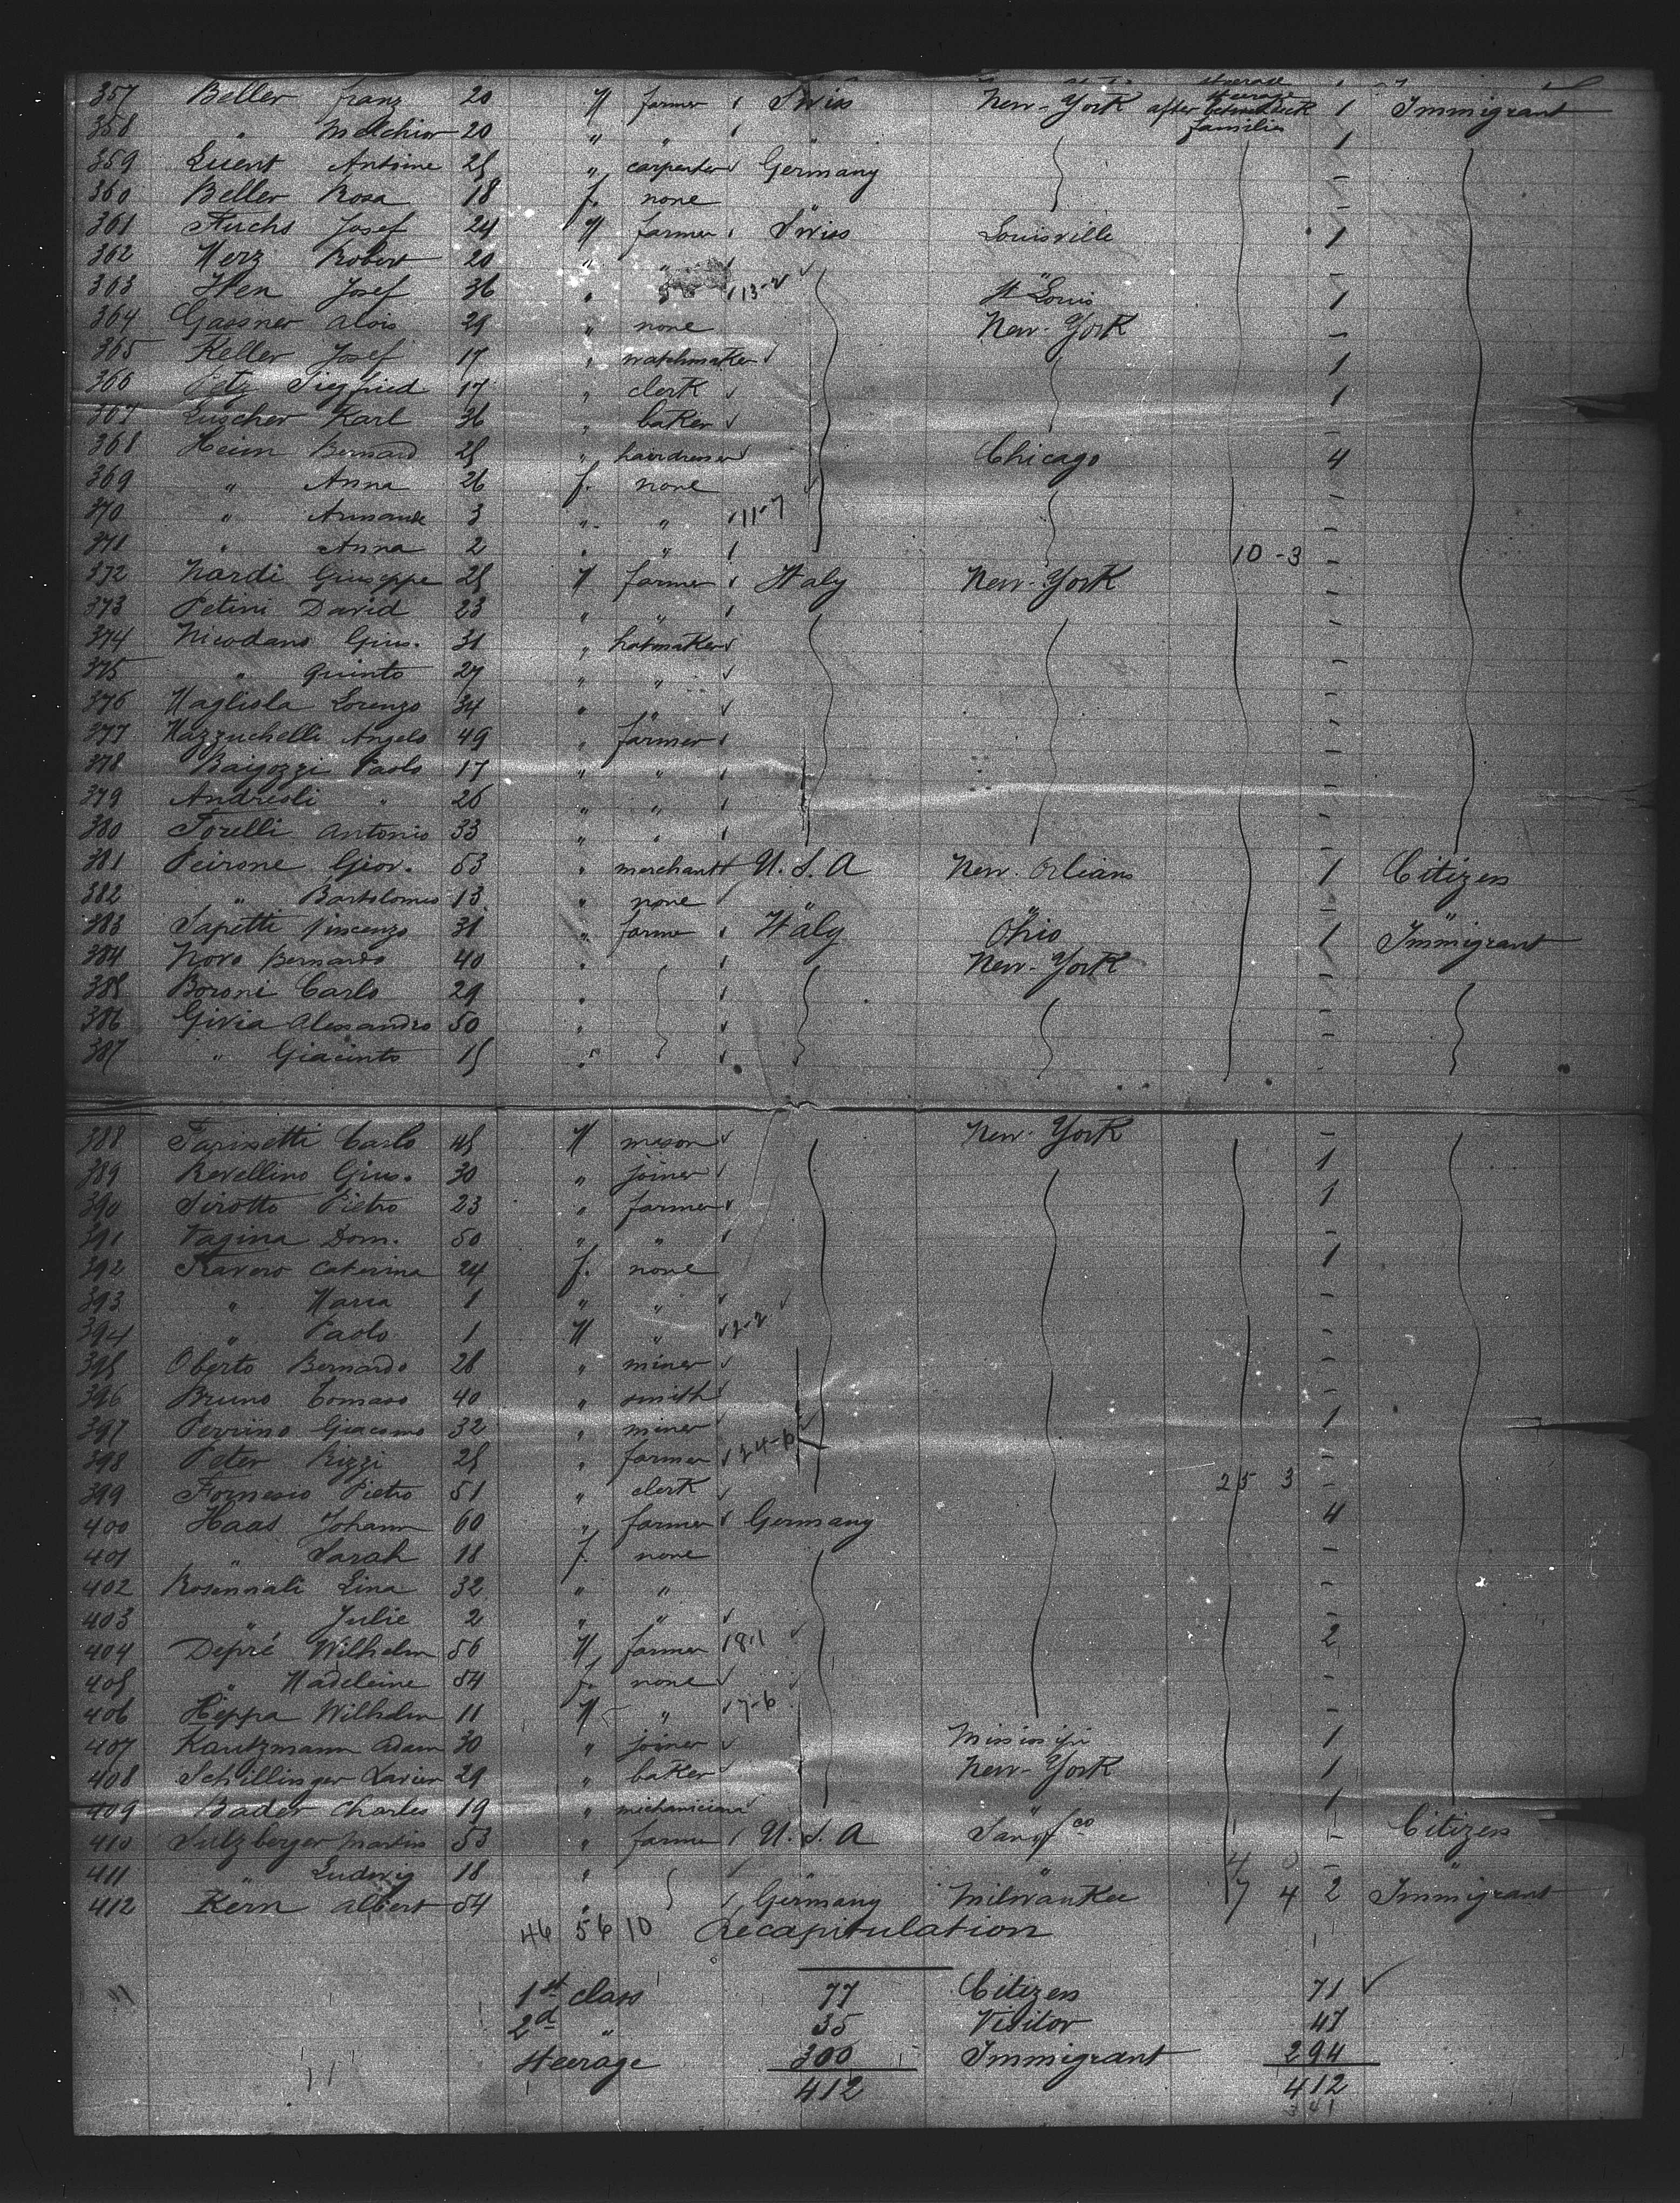 357 Beller Franz 20 M farmer Swiss New-York steerage after between Deck families 1 Immigrant
358 " Melchior 20 " " " 1
359 Luent Antoine 25 " carpenter Germany -
360 Beller Rosa 18 f. none " -
361 Fuchs Josef 24 M farmer Swiss Louisville 1
362 Merz Robert 20 " " -
363 Josef 36 " " 13-2 St Louis 1
364 Gassner Alois 29 " none New-York -
365 Keller Josef 17 " watchmaker 1
366 Petz Siegfried 17 " clerk 1
367 Luscher Karl 36 " baker -
368 Heim Bernard 25 " hairdresser Chicago 4
369 " Anna 26 f. none -
370 " 3 " " 11-7 -
371 " Anna 2 " " 10-3 -
372 Nardi Giuseppe 25 M farmer Italy New-York -
373 Petini David 23 " " -
374 Nicodano Gius. 31 " hatmaker -
375 " Quinto 27 " " -
376 Magliola Lorenzo 34 " " -
377 Mazzuchelli Angelo 49 " farmer -
378 Baigozzi Paolo 17 " " -
379 Andreoli " 26 " " -
380 Torelli Antonio 33 " " -
381 Peirone Giov. 53 " merchant U.S.A New-Orlians 1 Citizen
382 " Bartolomeo 13 " none " " - "
383 Sapetti Vincenzo 31 " farmer Italy Ohio 1 Immigrant
384 Novo Bernardo 40 " New-York -
385 Boroni Carlo 29 " -
386 Givia Alessandro 50 " -
387 " Giacinto 15 " -
388 Farinetti Carlo 45 M mason New-York -
389 Revellino Gius. 30 " joiner 1
390 Sirotto Pietro 23 " farmer 1
391 Vagina Dom. 50 " " -
392 Ravero Caterina 24 f. none 1
393 " Maria 1 " " -
394 " Paolo 1 M " 2-2 -
395 Oberto Bernardo 28 " miner -
396 Bruno Tomaso 40 " smith -
397 Perrino Giacomo 32 " miner 1
398 Peter Rizzi 25 " farmer 24-6 -
399 Fornesio Pietro 51 " clerk 25 3 -
400 Haas Johann 60 " farmer Germany 4
401 " Sarah 18 f. none -
402 Lina 32 " " -
403 " Julie 2 " " -
404 Depré Wilhelm 56 M farmer 18-1 2
405 " Madeleine 54 f. none -
406 Heppa Wilhelm 11 M " 7-6 -
407 Kautzmann Adam 30 " joiner Missisipi 1
408 Schillinger Xavier 29 " baker New-York 1
409 Bader Charles 19 " michanician " 1
410 Sulzberger Martin 53 " farmer U.S.A San fco - Citizen
411 " Ludwig 18 " " " - "
412 Kern Albert 54 " Germany Milwaukee 7 4 2 Immigrant
46 56 10 Recapitulation
1st class 77 Citizen 71
2d " 35 Visitor 47
Steerage 300 Immigrant 294
412 412
341